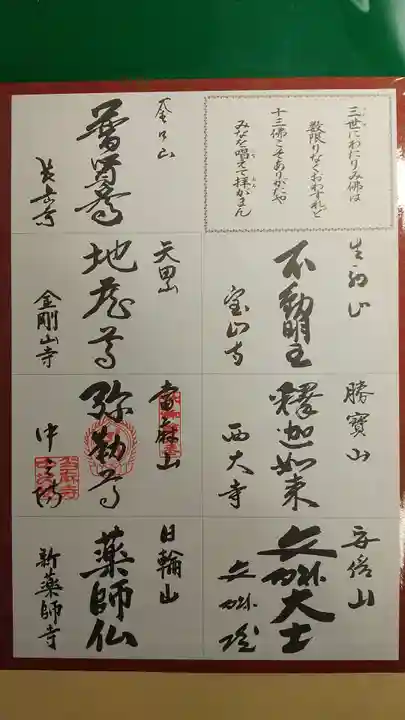 三世にわたりみ佛は
数限りなくおわすれど
十三佛こそありがたや
みなを唱えて拝がまん
生駒山
不動明王
宝山寺
勝寳山
釋迦如来
西大寺
安倍山
文殊大士
文殊院
普賢尊
矢田山
地蔵尊
金剛山寺
當麻山
弥勒尊
中之坊
日輪山
薬師仏
新薬師寺